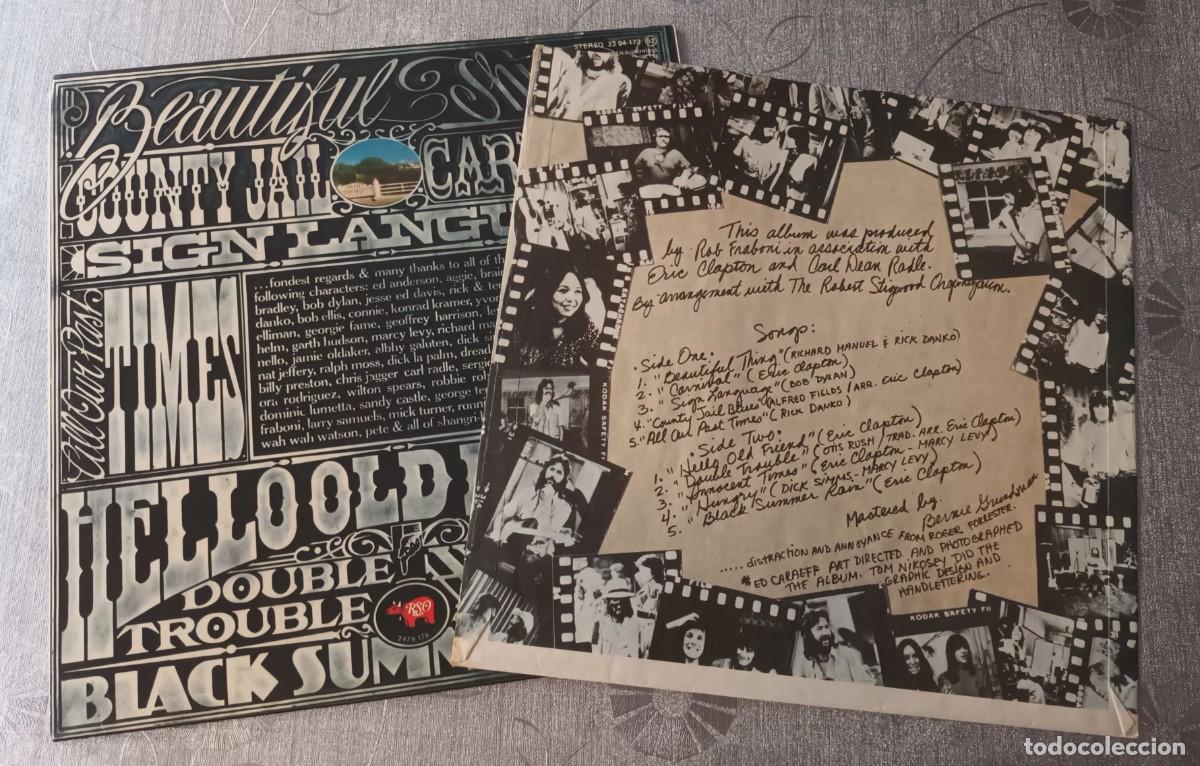 STEREO 23 94 172
Beautiful
COUNTY JAIL
SIGN LANGU
All Our Past
TIMES
...fondest regards & many thanks to all of th
following characters: ed anderson, aggie, brai
bradley, bob dylan, jesse ed davis, rick & te
danko, bob ellis, connie, konrad kramer, yvo
elliman, georgie fame, geoffrey harrison, le
helm, garth hudson, marcy levy, richard ma
nello, jamie oldaker, albhy galuten, dick s
nat jeffery, ralph moss, dick la palm, dread
billy preston, chris jagger carl radle, serg
ora rodriguez, wilton spears, robbie ro
dominic lumetta, sandy castle, george te
fraboni, larry samuels, mick turner, roun
wah wah watson, pete & all of shangri
HELLO OLD
DOUBLE
TROUBLE
RSO
2479 179
BLACK SUMM
KODAK SAFETY FIL
This album was produced
by Rob Fraboni in association with
Eric Clapton and Carl Dean Radle.
By arrangement with The Robert Stigwood Organization.
Songs:
Side One:
1. "Beautiful Thing" (RICHARD MANUEL & RICK DANKO)
2. "Carnival" (Eric Clapton)
3. "Sign Language" (BOB DYLAN)
4. "County Jail Blues" (ALFRED FIELDS / ARR. Eric Clapton)
5. "All Our Past Times" (RICK DANKO)
Side Two:
1. "Hello Old Friend" (Eric Clapton)
2. "Double Trouble" (OTIS RUSH / TRAD. ARR. Eric Clapton)
3. "Innocent Times" (Eric Clapton - MARCY LEVY)
4. "Hungry" (DICK SIMMS - MARCY LEVY)
5. "Black Summer Rain" (Eric Clapton)
Mastered by
Bernie Grundman
..... DISTRACTION AND ANNOYANCE FROM ROGER FORRESTER.
*ED CARAEFF ART DIRECTED AND PHOTOGRAPHED
THE ALBUM. TOM NIKOSEY DID THE
GRAPHIC DESIGN AND
HANDLETTERING.
KODAK SAFETY
KODAK SAFETY FIL
todocoleccion